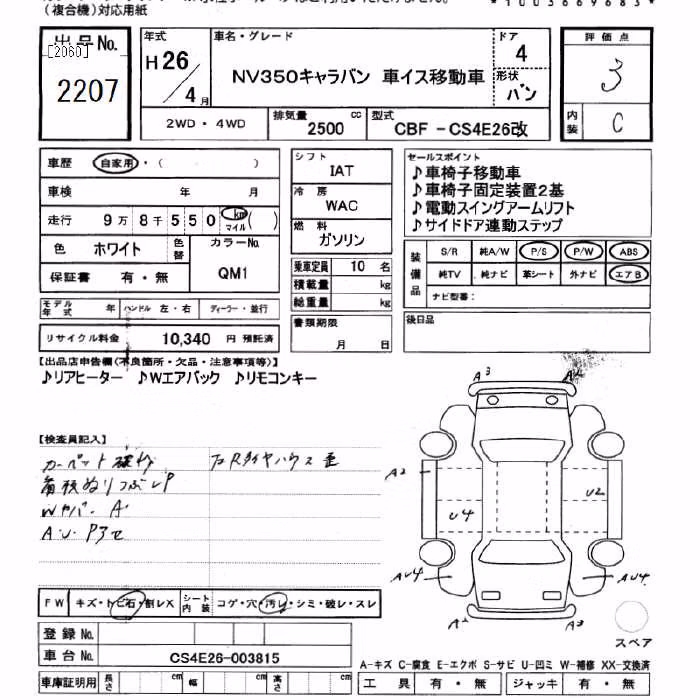 (複合機)対応用紙
*1003669683*
出品No.
[2060]
2207
年式
H26/4月
車名・グレード
NV350キャラバン 車イス移動車
ドア
4
形状
バン
評価点
3
内装
C
2WD・4WD
排気量
2500 cc
型式
CBF-CS4E26改
車歴 自家用・( )
車検 年 月
走行 9万8千550 km マイル( )
色 ホワイト 色替
カラーNo.
QM1
保証書 有・無
シフト
IAT
冷房
WAC
燃料
ガソリン
乗車定員 10名
積載量 kg
総重量 kg
セールスポイント
♪車椅子移動車
♪車椅子固定装置2基
♪電動スイングアームリフト
♪サイドドア連動ステップ
装備品
S/R 純A/W P/S P/W ABS
純TV 純ナビ 革シート 外ナビ エアB
ナビ型番:
モデル年式 年 ハンドル 左・右 ディーラー・並行
リサイクル料金 10,340 円 預託済
書類期限
月 日
後日品
【出品店申告欄(不良箇所・欠品・注意事項等)】
♪リアヒーター ♪Wエアバック ♪リモコンキー
【検査員記入】
A3
A2
A2
U2
U4
AU4
AU4
A2
A3
スペア
FW キズ・トビ石・割レX
シート内装 コゲ・穴・汚レ・シミ・破レ・スレ
登録No.
車台No. CS4E26-003815
車庫証明用 長さ cm 幅 cm 高さ cm
A-キズ C-腐食 E-エクボ S-サビ U-凹ミ W-補修 XX-交換済
工具 有・無 ジャッキ 有・無